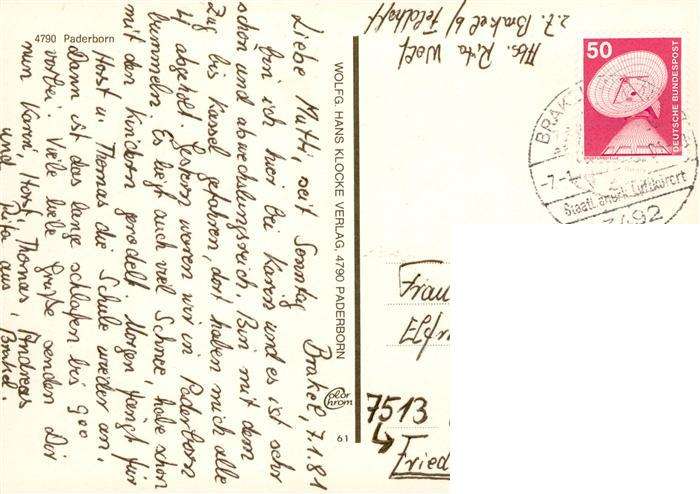 4790 Paderborn
Brakel, 7.1.81
Liebe Mutti, seit Sonntag
bin ich hier bei Karen und es ist sehr
schön und abwechslungsreich. Bin mit dem
Zug bis Kassel gefahren, dort haben mich alle
4 abgeholt. Gestern waren wir in Paderborn
bummeln. Es liegt auch viel Schnee, habe schon
mit den Kindern gerodelt. Morgen fängt für
Horst u. Thomas die Schule wieder an.
Dann ist das lange schlafen bis 9.00
vorbei. Viele liebe Grüße senden Dir
nun Karen, Horst, Thomas, Andreas
und Rita aus Brakel.
WOLFG. HANS KLOCKE VERLAG, 4790 PADERBORN
Color
chrom
61
Abs. Rita Wolf
z.Z. Brakel b/ Feldhoff
50
DEUTSCHE BUNDESPOST
BRAK
-7.-1.
Staatl. anerk. Luftkurort
3492
Frau
Elfr
7513
Fried